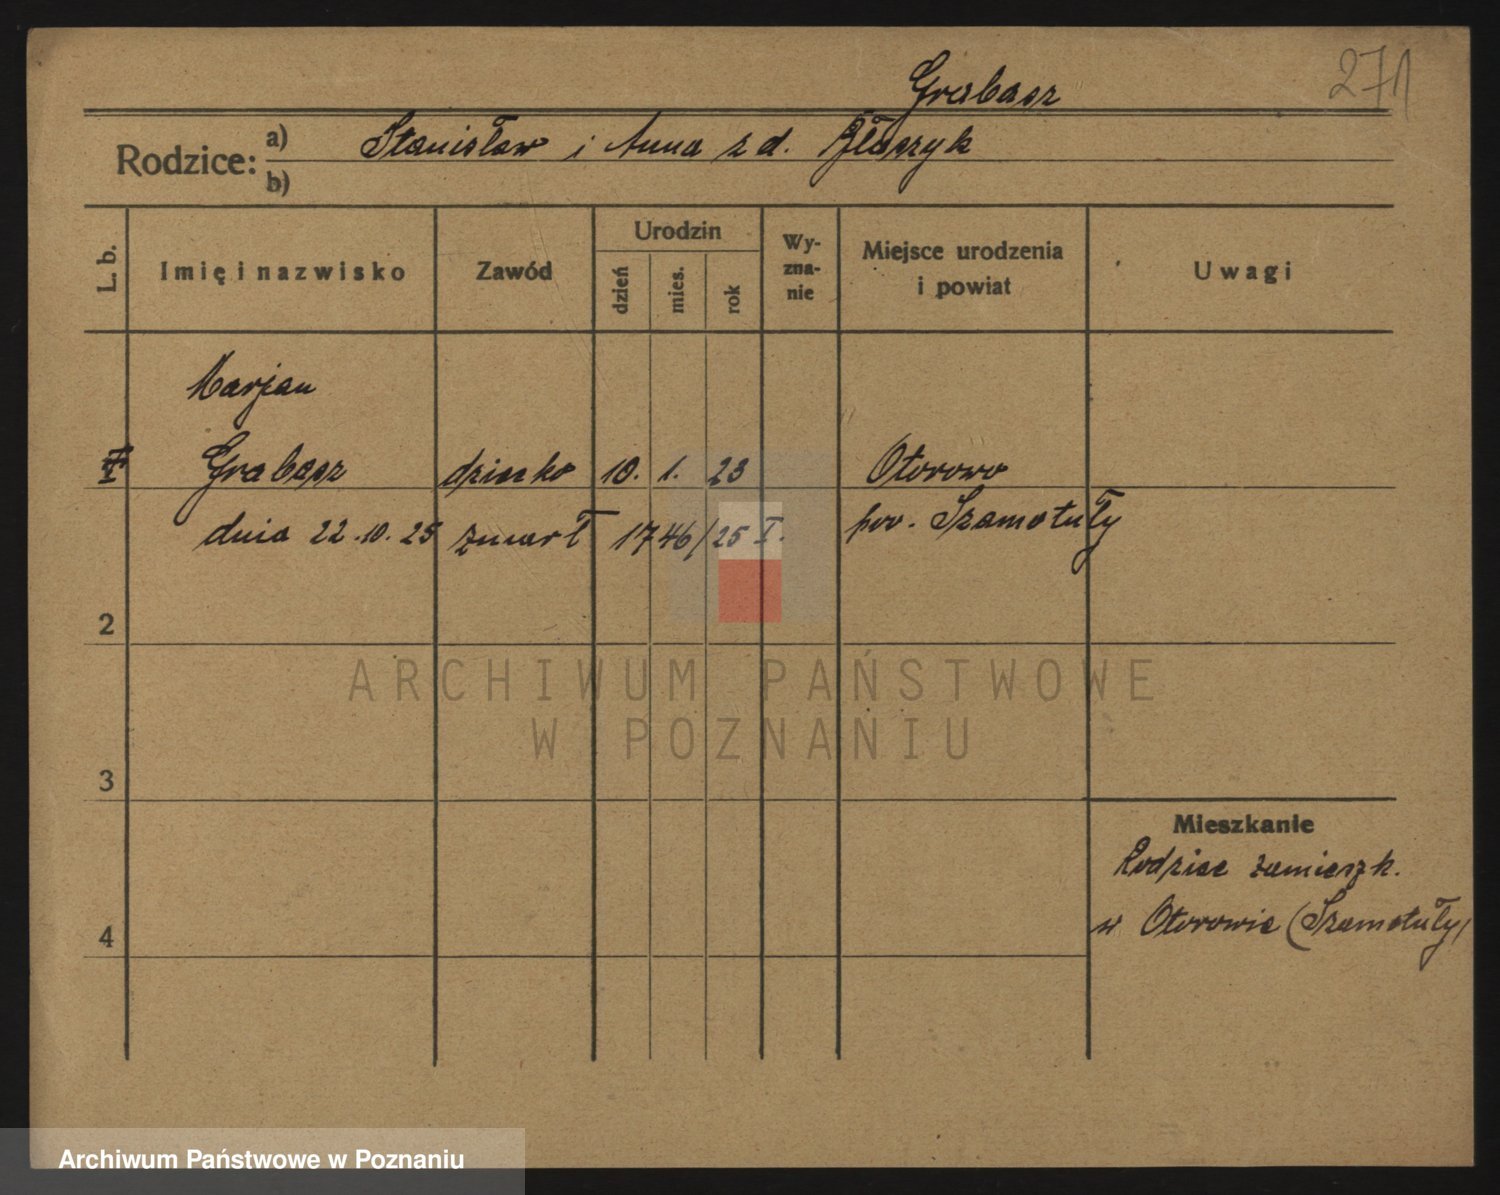 271
Grabasz
Rodzice: a) Stanisław i Anna z d.
b)
L. b. Imię i nazwisko Zawód Urodzin dzień mies. rok Wyzna-nie Miejsce urodzenia i powiat Uwagi
Marjan
Grabasz dziecko 10. 1. 23 Otorowo
dnia 22.10.25 zmarł 1746/25 I. pow. Szamotuły
2
ARCHIWUM PAŃSTWOWE
W POZNANIU
3
Mieszkanie
Rodzice zamieszk.
w Otorowie (Szamotuły)
4
Archiwum Państwowe w Poznaniu